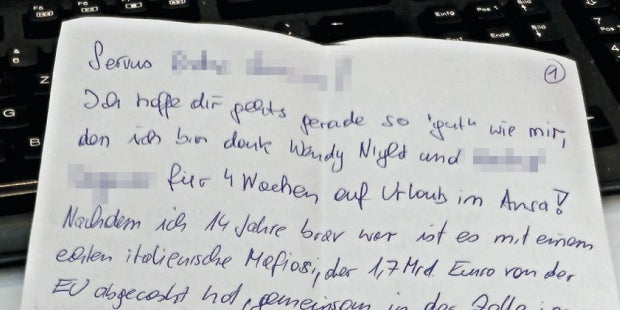 Servus
①
Ich hoffe dir gehts gerade so "gut" wie mir,
den ich bin dank Wendy Night und
für 4 Wochen auf Urlaub im Ansa!
Nachdem ich 14 Jahre brav war ist es mit einem
echten italienische Mafiosi, der 1,7 Mrd Euro von der
EU abgecasht hat, gemeinsam in der Zelle
Einfg Pos 1 Bild
Entf Ende Bild
7
Pos 1
4
G
B